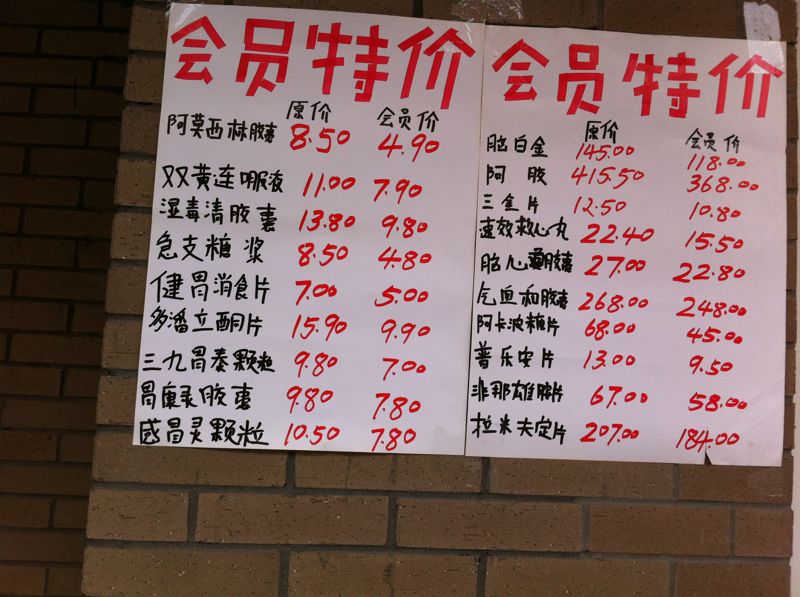 会员特价
原价 会员价
阿莫西林胶囊 8.50 4.90
双黄连口服液 11.00 7.90
湿毒清胶囊 13.80 9.80
急支糖浆 8.50 4.80
健胃消食片 7.00 5.00
多潘立酮片 15.90 9.90
三九胃泰颗粒 9.80 7.00
胃康灵胶囊 9.80 7.80
感冒灵颗粒 10.50 7.80
会员特价
原价 会员价
脑白金 145.00 118.00
阿胶 415.50 368.00
三金片 12.50 10.80
速效救心丸 22.40 15.50
脑心通胶囊 27.00 22.80
气血和胶囊 268.00 248.00
阿卡波糖片 68.00 45.00
普乐安片 13.00 9.50
非那雄胺片 67.00 58.00
拉米夫定片 207.00 184.00